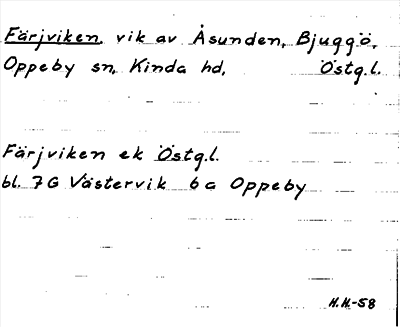 Färjviken, vik av Åsunden, Bjuggö,
Oppeby sn, Kinda hd, Östg.l.
Färjviken ek Östg.l.
bl. 7G Västervik 6a Oppeby
H.H.-58